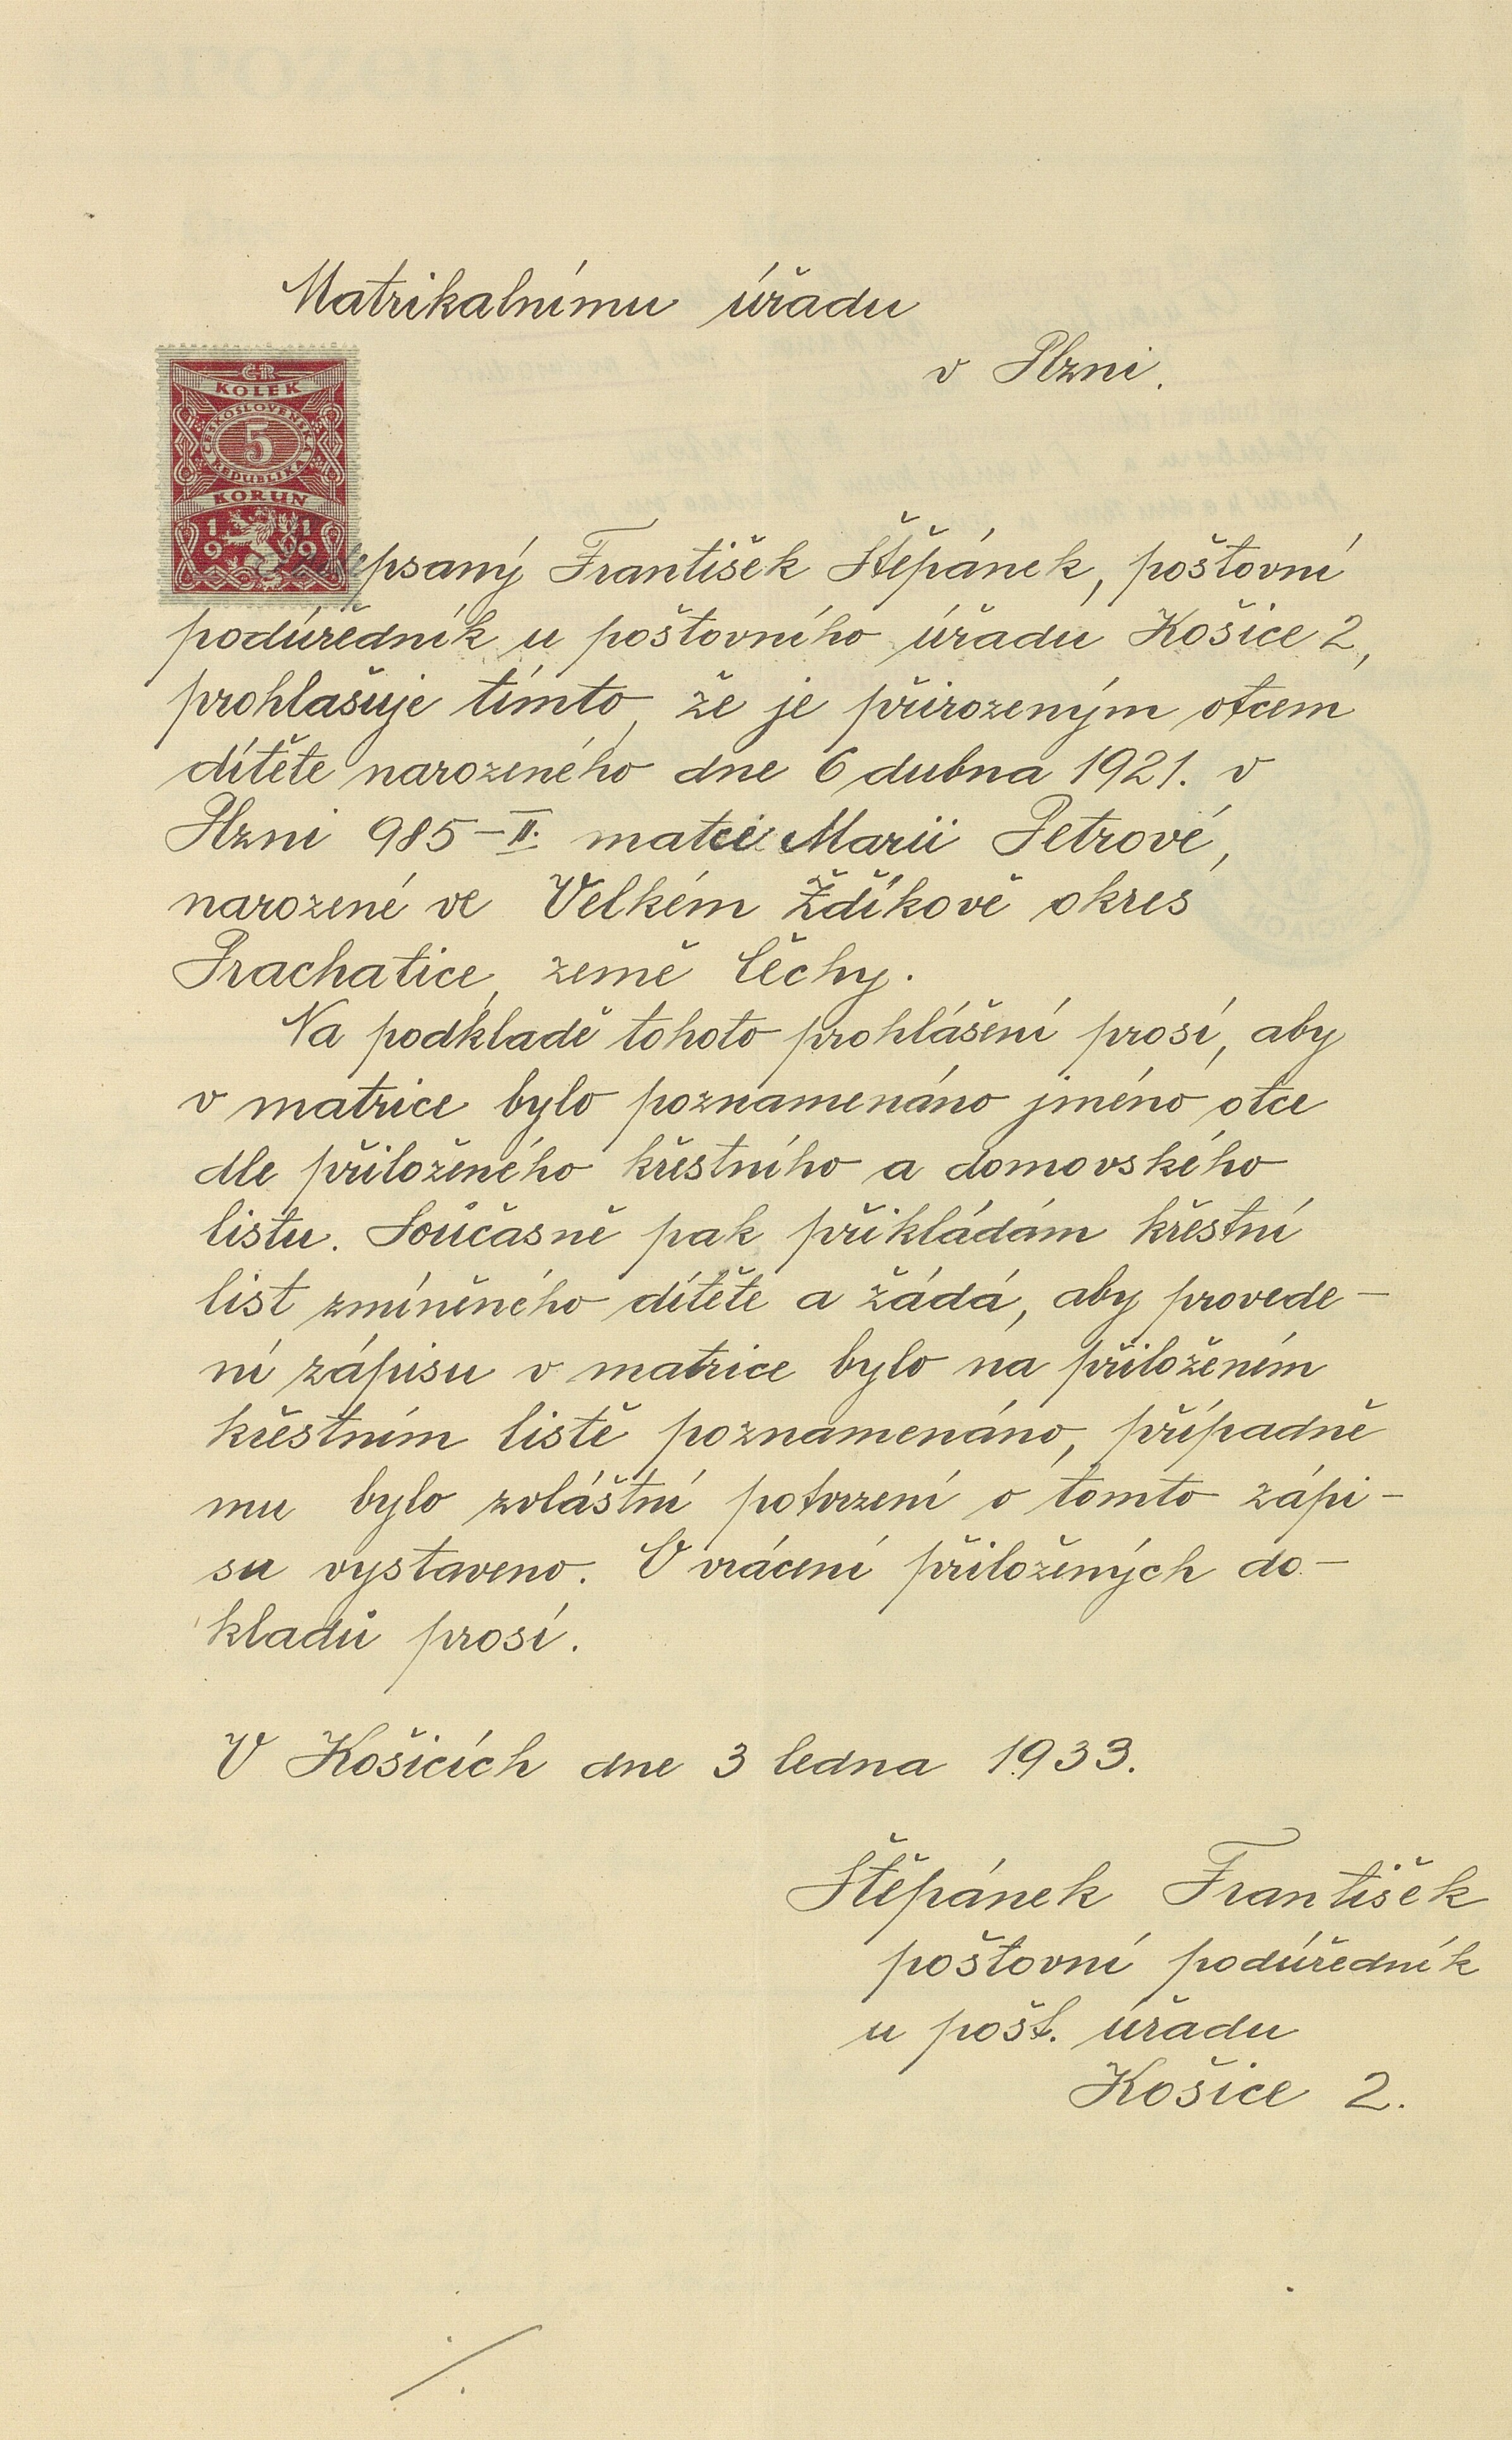 Matrikalnímu úřadu
v Plzni.
ČR
KOLEK
ČESKOSLOVENSKÁ
5
REPUBLIKA
KORUN
1919
psaný František Štěpánek, poštovní
podúředník u poštovního úřadu Košice 2,
prohlašuje tímto, že je přirozeným otcem
dítěte narozeného dne 6 dubna 1921. v
Plzni 985-II. matce Marii Petrové,
narozené ve Velkém Ždíkově okres
Prachatice, země Čěchy.
Na podkladě tohoto prohlášení prosí, aby
v matrice bylo poznamenáno jméno otce
dle přiloženého křestního a domovského
listu. Současně pak přikládám křestní
list zmíněného dítěte a žádá, aby provede-
ní zápisu v matrice bylo na přiloženém
křestním listě poznamenáno, případně
mu bylo zvláštní potvrzení o tomto zápi-
su vystaveno. O vrácení přiložených do-
kladů prosí.
V Košicích dne 3 ledna 1933.
Štěpánek František
poštovní podúředník
u pošt. úřadu
Košice 2.